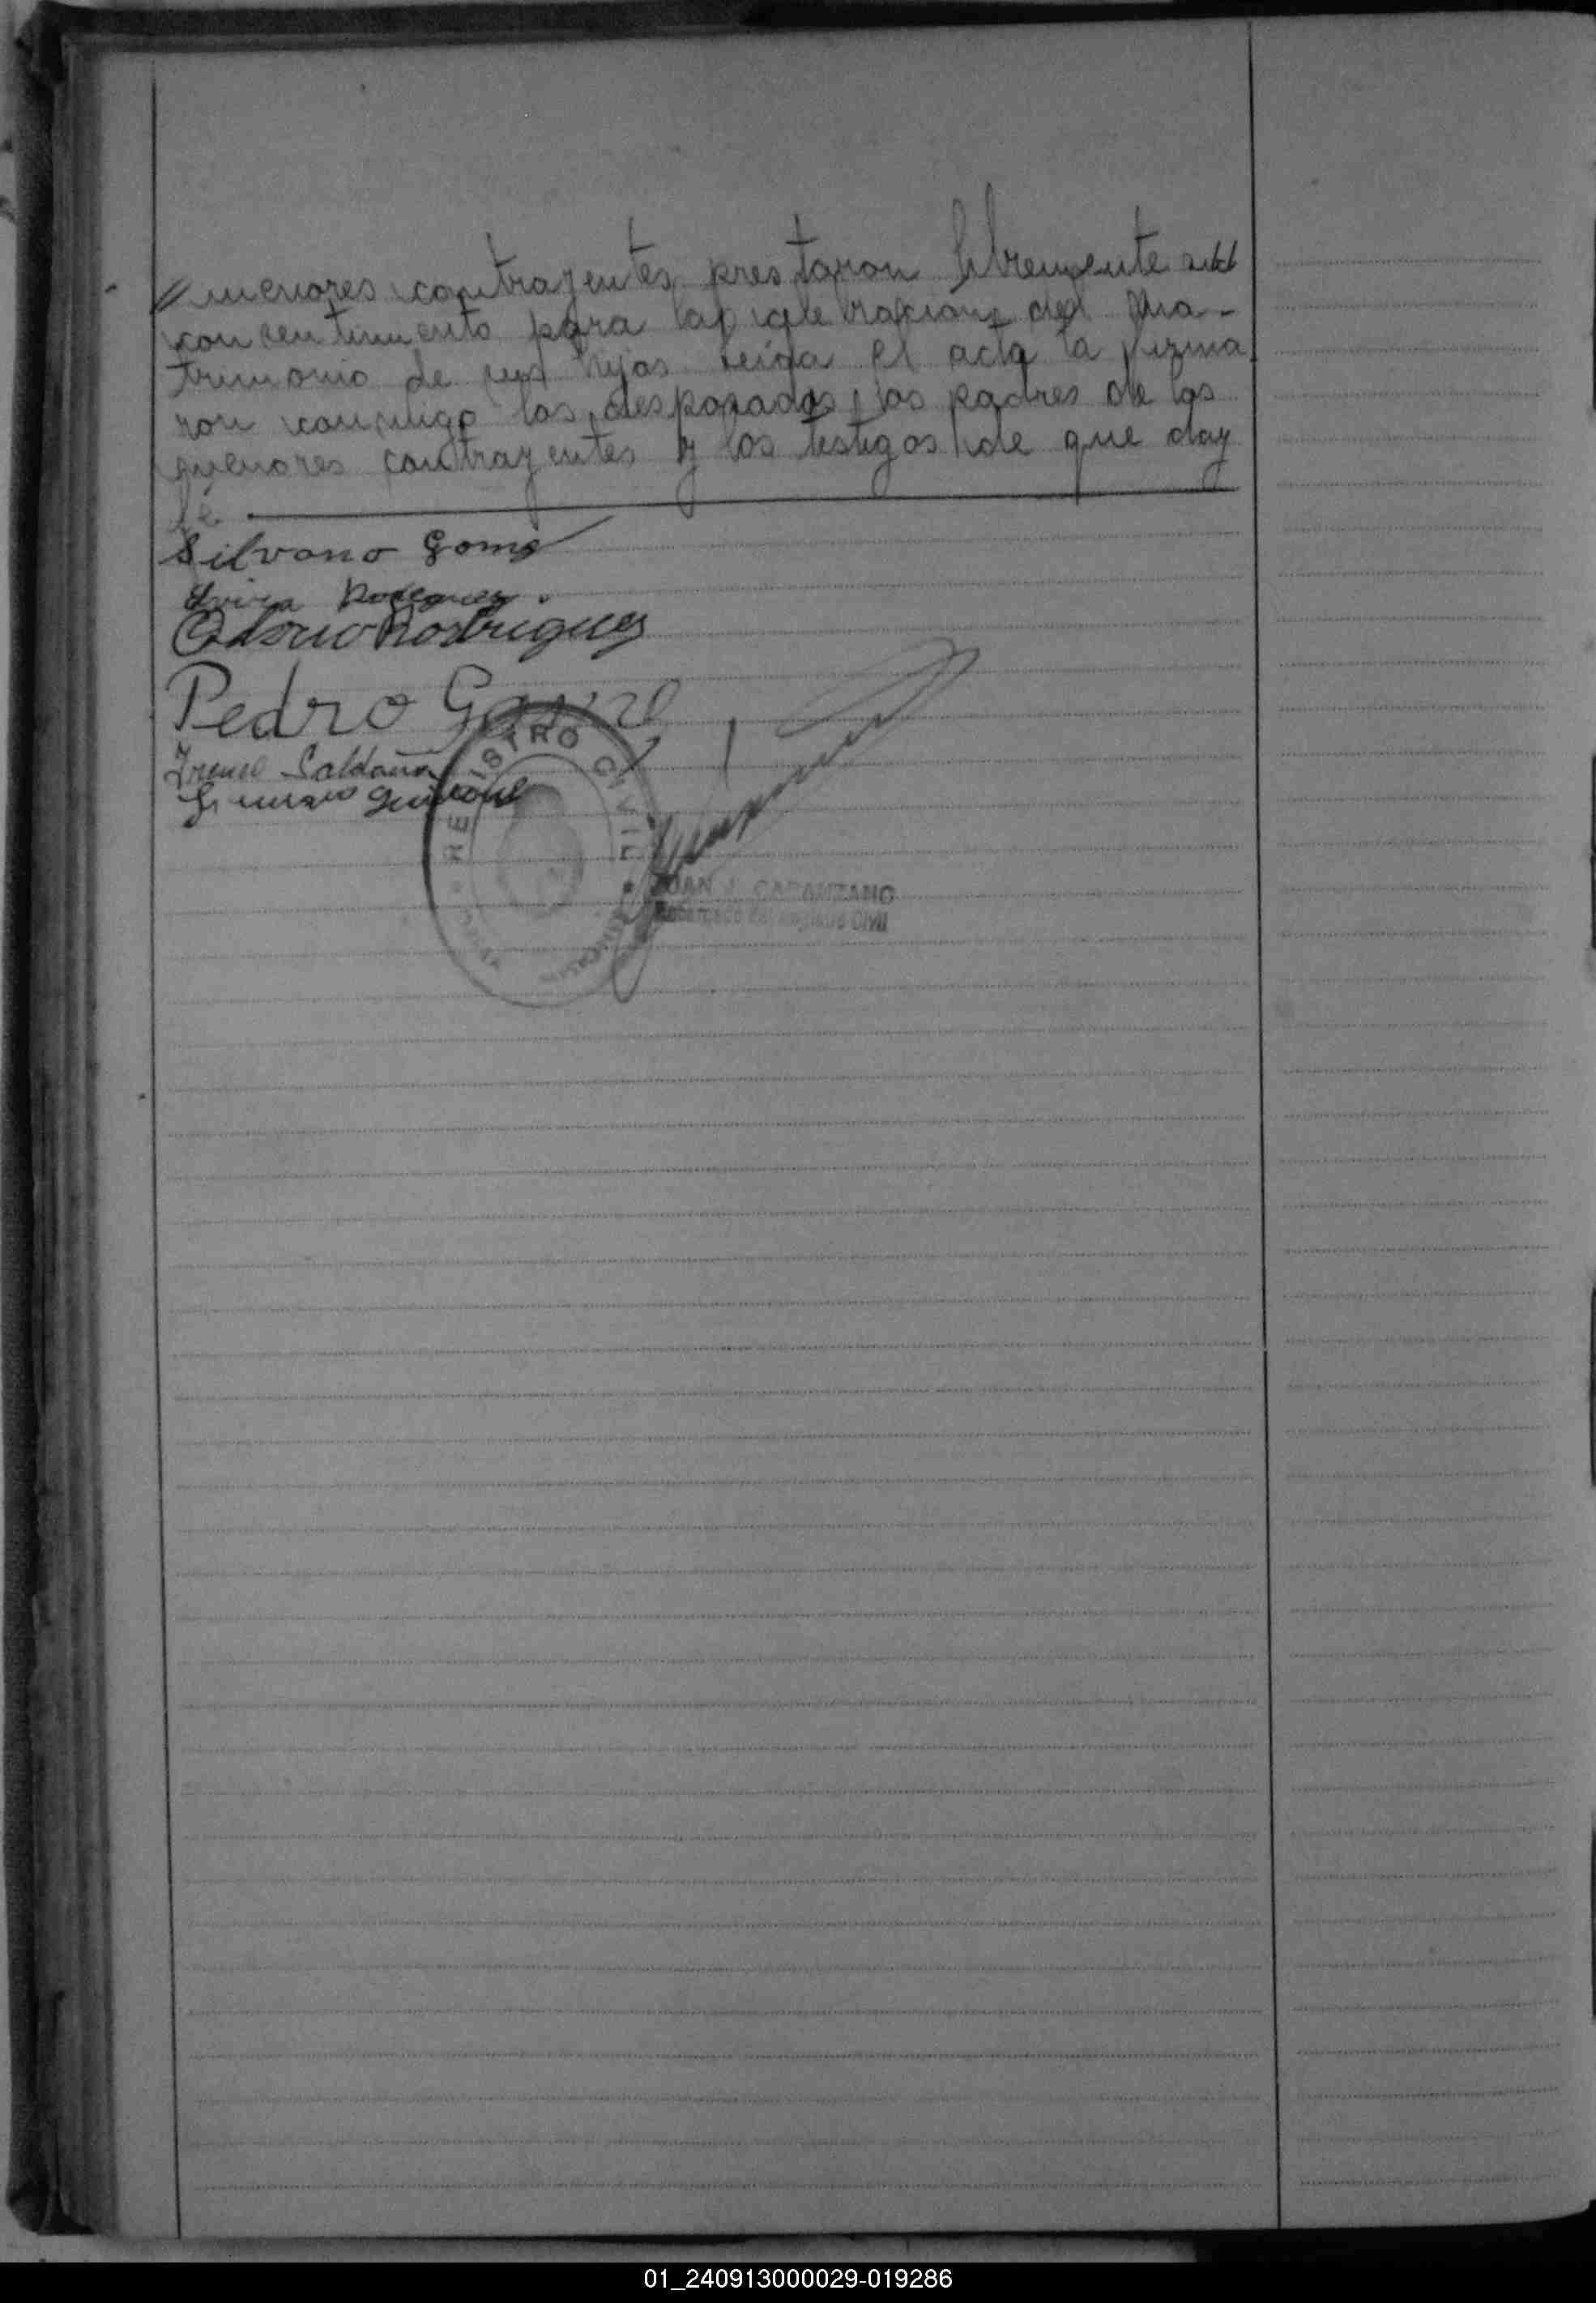 menores contrayentes prestaron libremente su
consentimiento para la celebracion del Ma-
trimonio de sus hijos leida el acta la firma
ron conmigo los desposados, los padres de los
menores contrayentes y los testigos de que doy
fé
Silvano Gome
Rodriguez
Rodriguez
Pedro
Irene Saldaña
REGISTRO CIVIL
JUAN J. CAPANZANO
Encargado del Registro Civil
01_240913000029-019286